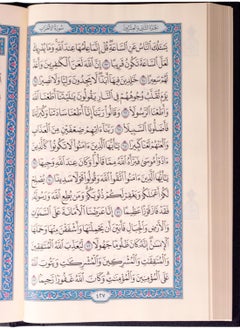 الجزء الثاني والعشرون سورة الأحزاب
يَسْـَٔلُكَ ٱلنَّاسُ عَنِ ٱلسَّاعَةِ ۖ قُلْ إِنَّمَا عِلْمُهَا عِندَ ٱللَّهِ ۚ وَمَا يُدْرِيكَ
لَعَلَّ ٱلسَّاعَةَ تَكُونُ قَرِيبًا ٦٣ إِنَّ ٱللَّهَ لَعَنَ ٱلْكَٰفِرِينَ وَأَعَدَّ
لَهُمْ سَعِيرًا ٦٤ خَٰلِدِينَ فِيهَآ أَبَدًا ۖ لَّا يَجِدُونَ وَلِيًّا وَلَا نَصِيرًا ٦٥
يَوْمَ تُقَلَّبُ وُجُوهُهُمْ فِى ٱلنَّارِ يَقُولُونَ يَٰلَيْتَنَآ أَطَعْنَا ٱللَّهَ
وَأَطَعْنَا ٱلرَّسُولَا۠ ٦٦ وَقَالُوا۟ رَبَّنَآ إِنَّآ أَطَعْنَا سَادَتَنَا وَكُبَرَآءَنَا
فَأَضَلُّونَا ٱلسَّبِيلَا۠ ٦٧ رَبَّنَآ ءَاتِهِمْ ضِعْفَيْنِ مِنَ ٱلْعَذَابِ
وَٱلْعَنْهُمْ لَعْنًا كَبِيرًا ٦٨ يَٰٓأَيُّهَا ٱلَّذِينَ ءَامَنُوا۟ لَا تَكُونُوا۟ كَٱلَّذِينَ
ءَاذَوْا۟ مُوسَىٰ فَبَرَّأَهُ ٱللَّهُ مِمَّا قَالُوا۟ ۚ وَكَانَ عِندَ ٱللَّهِ وَجِيهًا ٦٩
يَٰٓأَيُّهَا ٱلَّذِينَ ءَامَنُوا۟ ٱتَّقُوا۟ ٱللَّهَ وَقُولُوا۟ قَوْلًا سَدِيدًا ٧٠ يُصْلِحْ
لَكُمْ أَعْمَٰلَكُمْ وَيَغْفِرْ لَكُمْ ذُنُوبَكُمْ ۗ وَمَن يُطِعِ ٱللَّهَ وَرَسُولَهُۥ
فَقَدْ فَازَ فَوْزًا عَظِيمًا ٧١ إِنَّا عَرَضْنَا ٱلْأَمَانَةَ عَلَى ٱلسَّمَٰوَٰتِ
وَٱلْأَرْضِ وَٱلْجِبَالِ فَأَبَيْنَ أَن يَحْمِلْنَهَا وَأَشْفَقْنَ مِنْهَا وَحَمَلَهَا
ٱلْإِنسَٰنُ ۖ إِنَّهُۥ كَانَ ظَلُومًا جَهُولًا ٧٢ لِّيُعَذِّبَ ٱللَّهُ ٱلْمُنَٰفِقِينَ
وَٱلْمُنَٰفِقَٰتِ وَٱلْمُشْرِكِينَ وَٱلْمُشْرِكَٰتِ وَيَتُوبَ ٱللَّهُ
عَلَى ٱلْمُؤْمِنِينَ وَٱلْمُؤْمِنَٰتِ ۗ وَكَانَ ٱللَّهُ غَفُورًا رَّحِيمًۢا ٧٣
٤٢٧